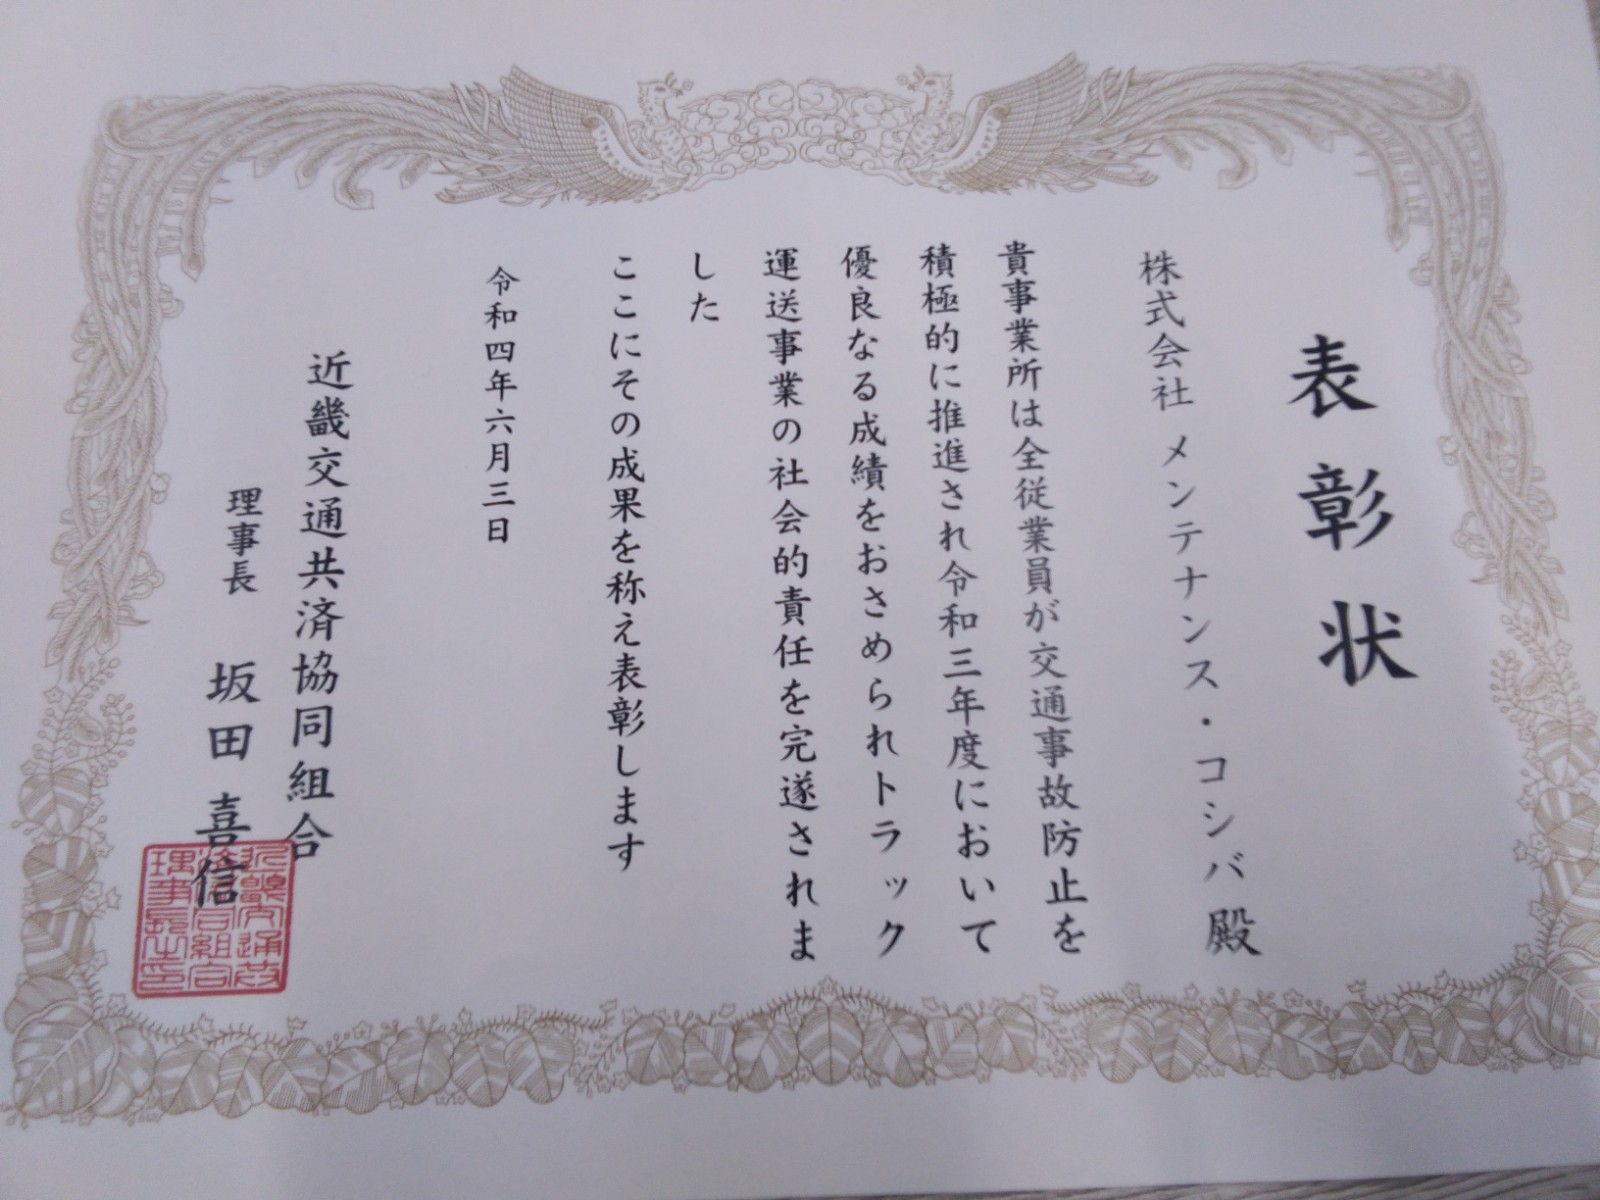 表彰状
株式会社 メンテナンス・コシバ 殿
貴事業所は全従業員が交通事故防止を
積極的に推進され令和三年度において
優良なる成績をおさめられトラック
運送事業の社会的責任を完遂されま
した
ここにその成果を称え表彰します
令和四年六月三日
近畿交通共済協同組合
理事長 坂田 喜信